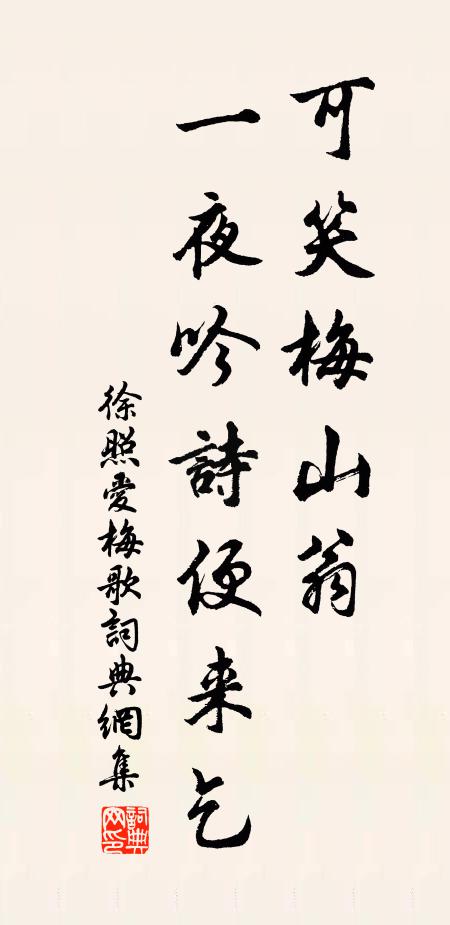 可笑梅山翁
一夜吟詩便来乞
徐照愛梅歌詞典網集
詞典網印